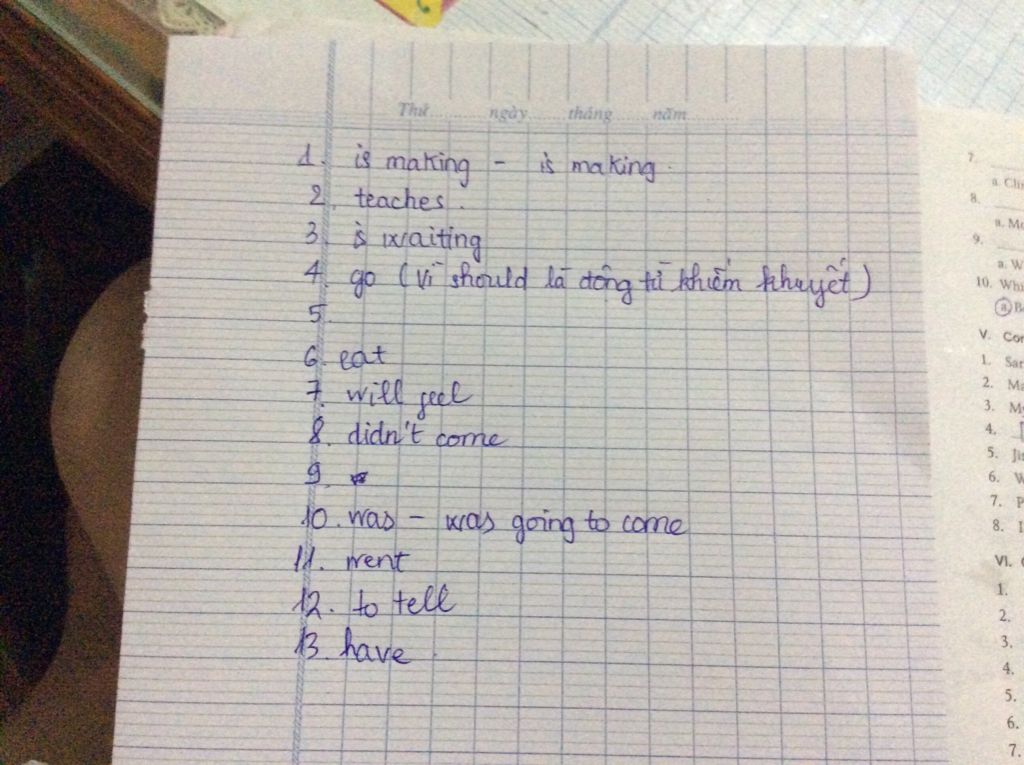 Thứ ngày tháng năm
1. is making - is making.
2. teaches.
3. is waiting
4. go (vì should là động từ khiếm khuyết)
5
6. eat
7. will feel
8. didn't come
9.
10. was - was going to come
11. went
12. to tell
13. have.
7.
a.
8.
a.
9.
a. W
10. Whi
a
V.
1.
2.
3.
4.
5.
6. W
7. P
8. I
VI.
1.
2.
3.
4.
5.
6.
7.